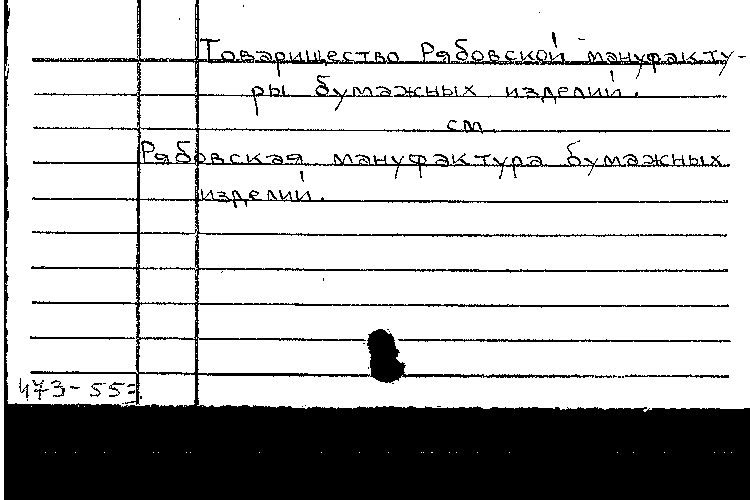 Товарищество Рябовской мануфакту-
ры бумажных изделий.
см.
Рябовская мануфактура бумажных
изделий.
473-55г.